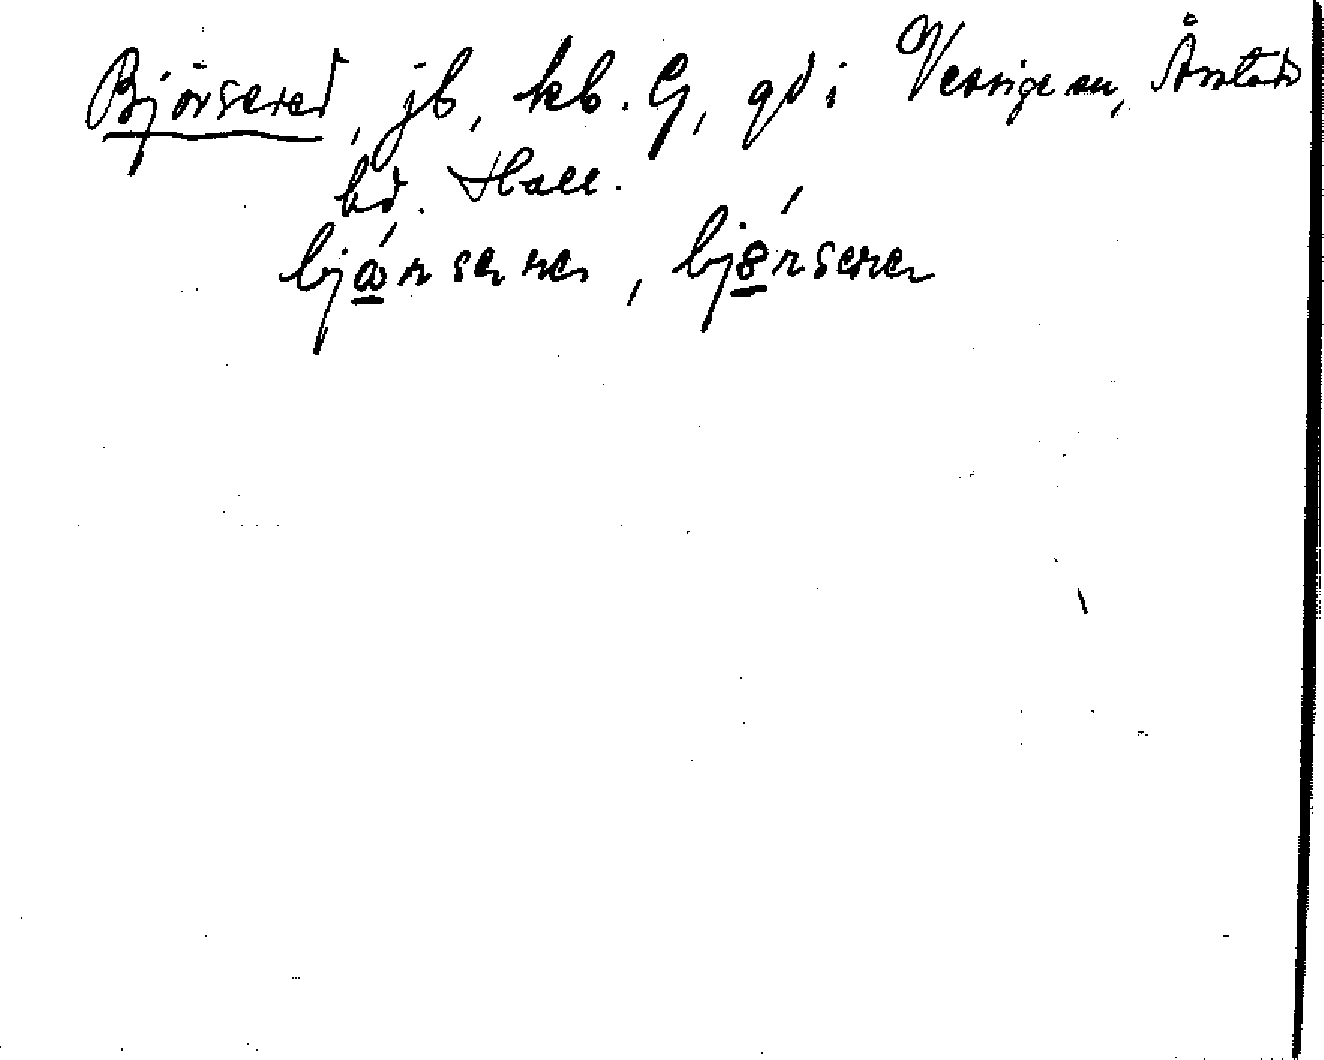 Björsered, jb, kb. G, gd i Vessige sn, Årstads
hd. Hall.
bjǿrserer, bjǿrserer